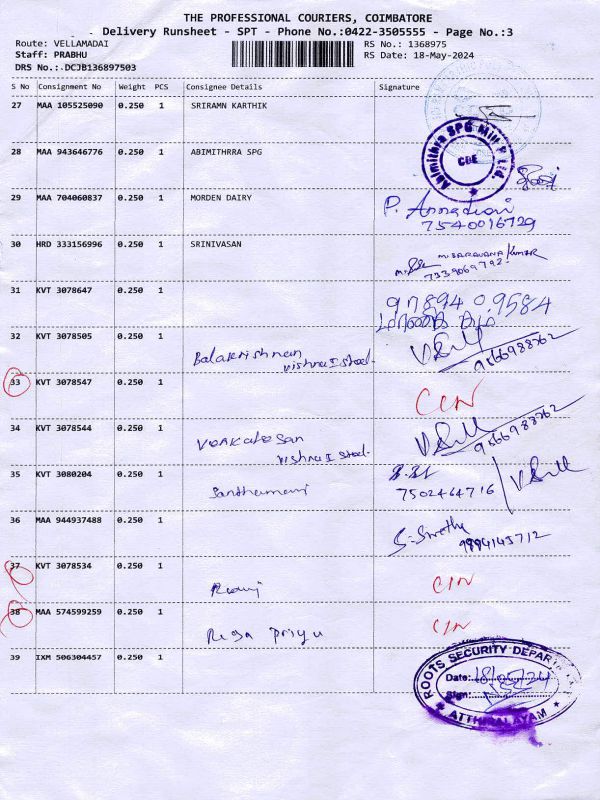 THE PROFESSIONAL COURIERS, COIMBATORE
Delivery Runsheet - SPT - Phone No.:0422-3505555 - Page No.:3
Route: VELLAMADAI RS No.: 1368975
Staff: PRABHU RS Date: 18-May-2024
DRS No.:-DCJB136897503
S No Consignment No Weight PCS Consignee Details Signature
27 MAA 105525090 0.250 1 SRIRAMN KARTHIK
Abimithra SPG Mill P Ltd. CBE
28 MAA 943646776 0.250 1 ABIMITHRRA SPG
29 MAA 704060837 0.250 1 MORDEN DAIRY P. Annadurai
7540016729
30 HRD 333156996 0.250 1 SRINIVASAN M. SARAVANA KUMAR
7339069792
31 KVT 3078647 0.250 1 97894 0.9584
32 KVT 3078505 0.250 1 Balakrishnan
Vishnu I Steel. 9566988262
33 KVT 3078547 0.250 1 CIN
34 KVT 3078544 0.250 1 Venkatesan
Vishnu I Steel. 9566988262
35 KVT 3080204 0.250 1 Santhamani 7502464716
36 MAA 944937488 0.250 1 S. Swetha
9894143712
37 KVT 3078534 0.250 1 CIN
38 MAA 574599259 0.250 1 Priya CIN
39 IXM 506304457 0.250 1
ROOTS SECURITY DEPARTMENT
Date: 18/05/24
Sign:
ATTHIPALAYAM